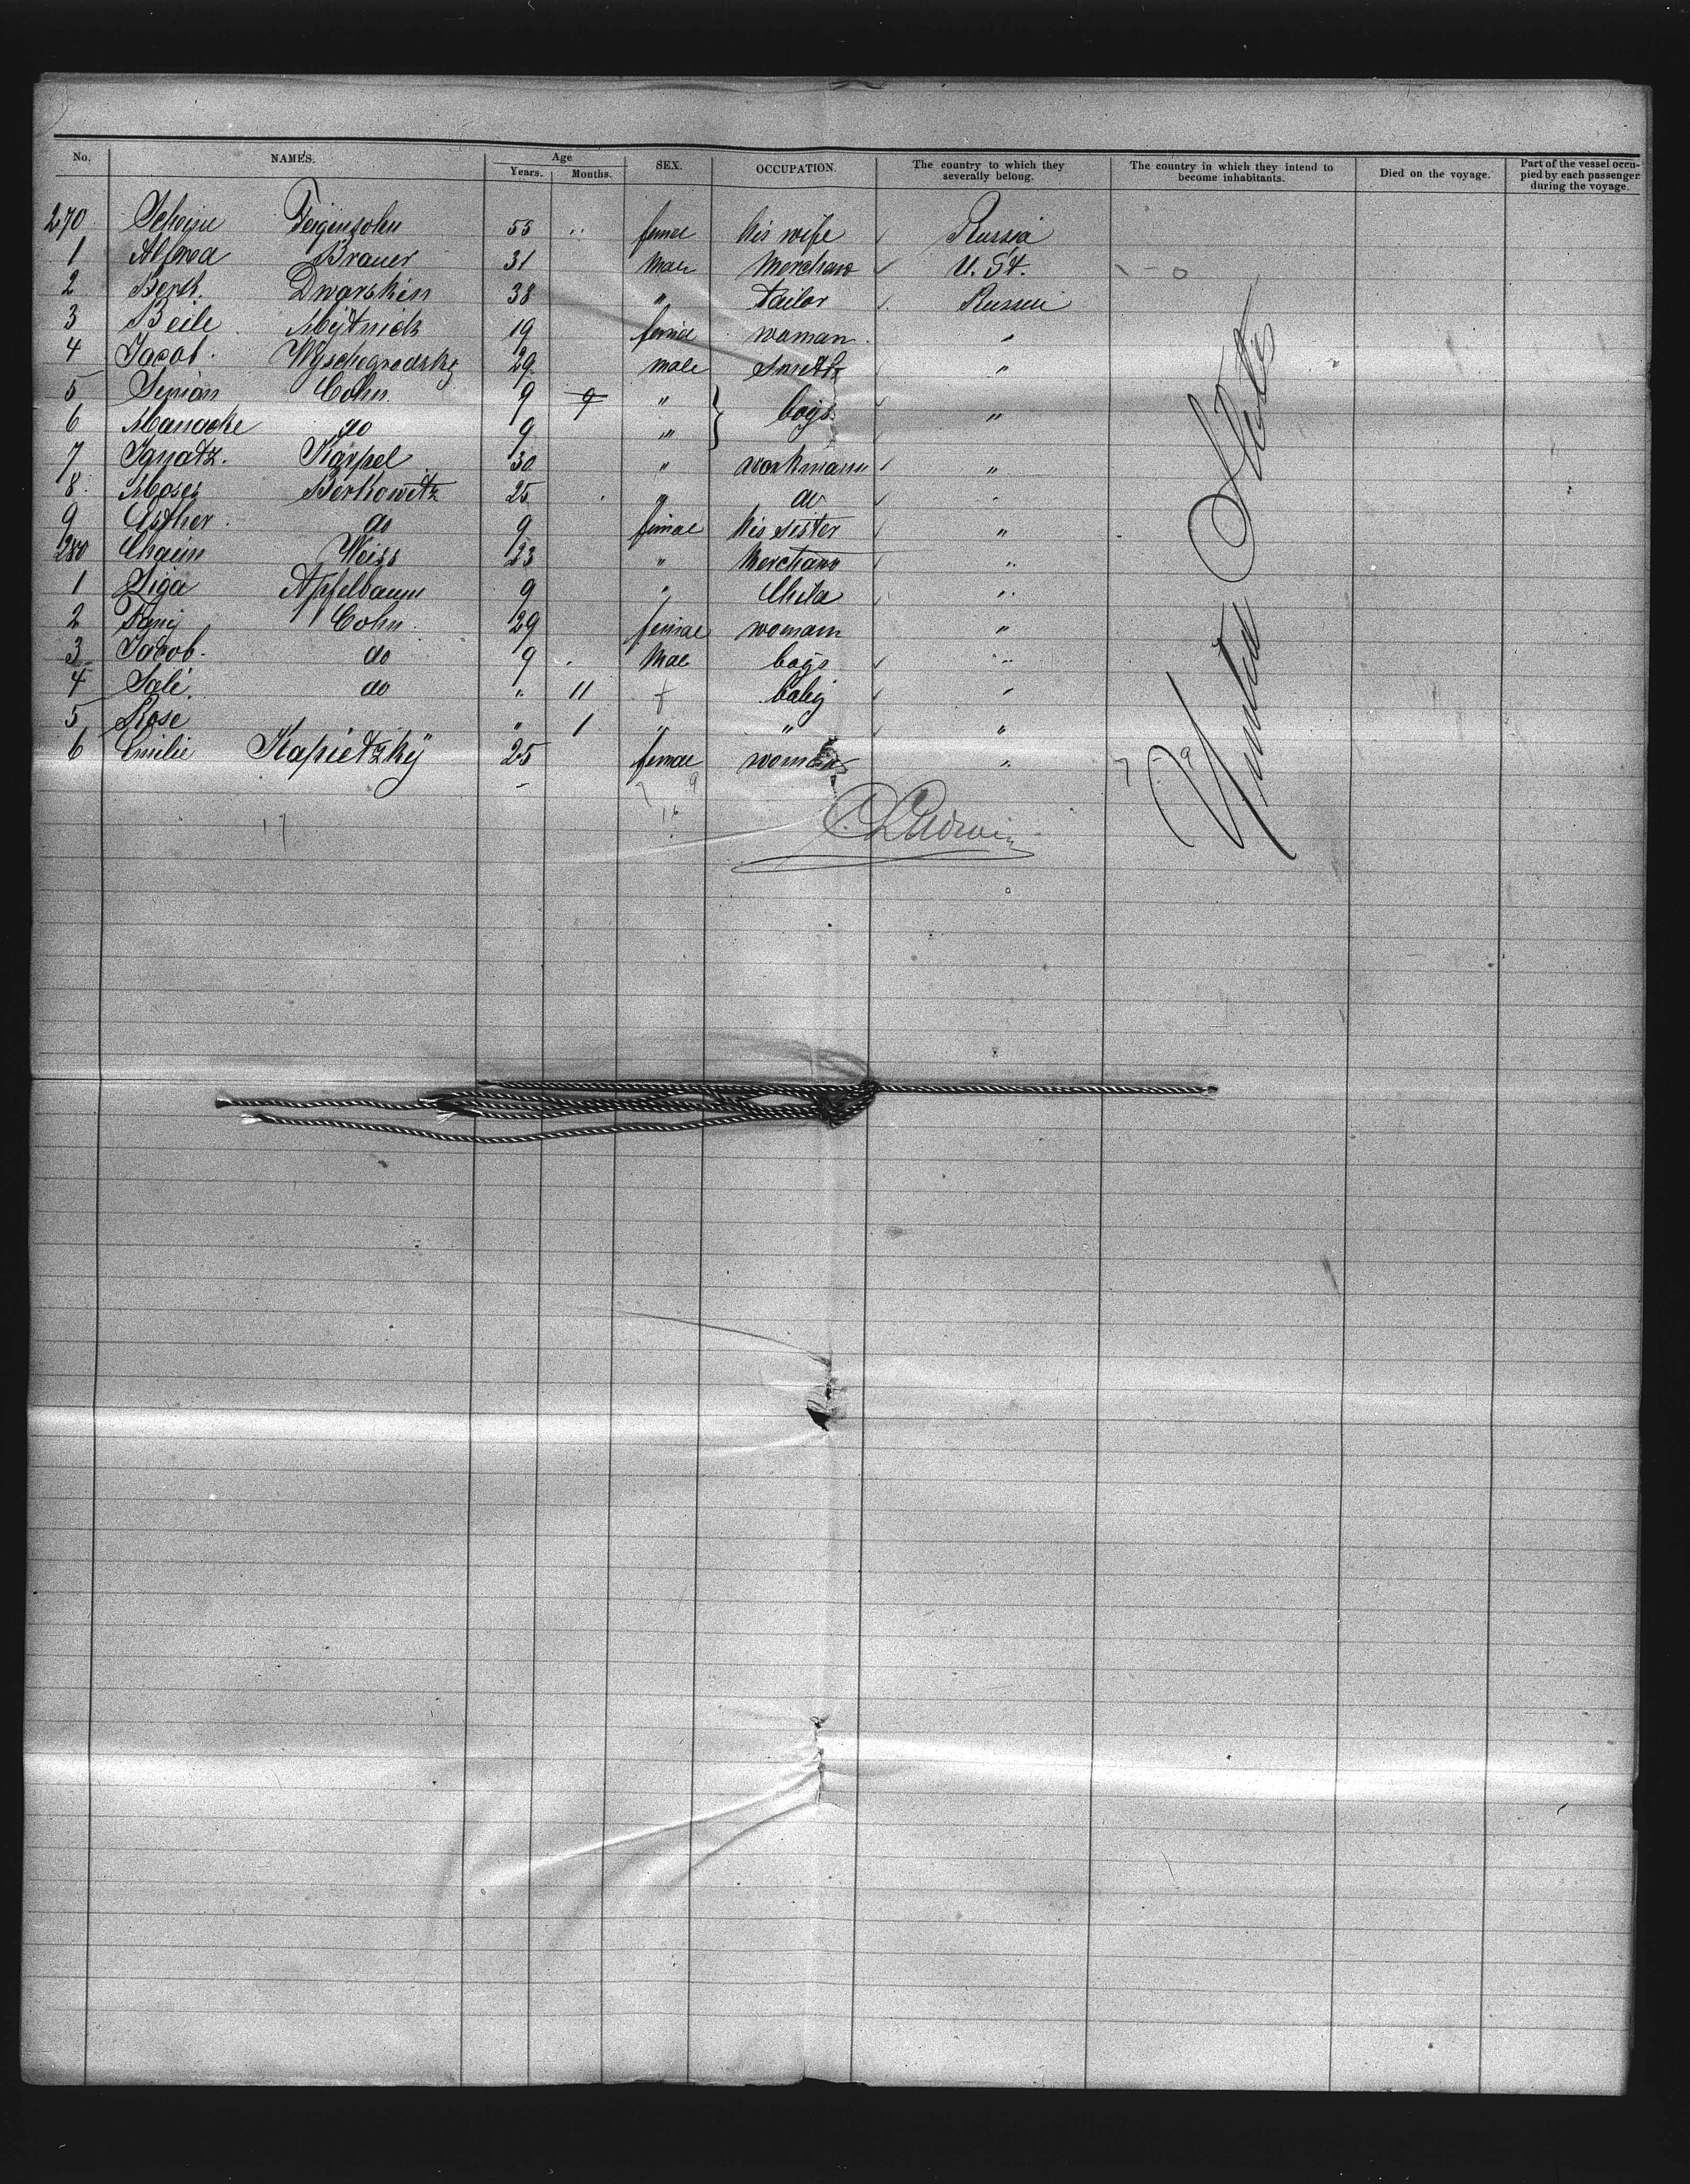 No. NAMES. Age Years. Months. SEX. OCCUPATION. The country to which they severally belong. The country in which they intend to become inhabitants. Died on the voyage. Part of the vessel occupied by each passenger during the voyage.
270 Feigensohn 55 " femal his wife Russia
1 Alfred Brauer 31 Mal Merchand U. St.
2 Berk. Dworskin 38 " Tailor Russia
3 Beile 19 femal woman "
4 Jacob. Wyschogrodzky 29 male Smith "
5 Simon Cohn 9 " boys "
6 do 9 "
7 Ignatz. Karpel 30 " workmann "
8 Moses Berkowitz 25 " do "
9 Esther do 9 femal his sister "
280 Chaim Weiss 23 " Merchand "
1 Apfelbaum 9 " Child "
2 Cohn 29 female woman "
3 Jacob. do 9 Mal boys "
4 Sali. do " 11 f baby "
5 Rose " 1 " " "
6 Emilie Kapietzky 25 femal woman "
United States
17 16